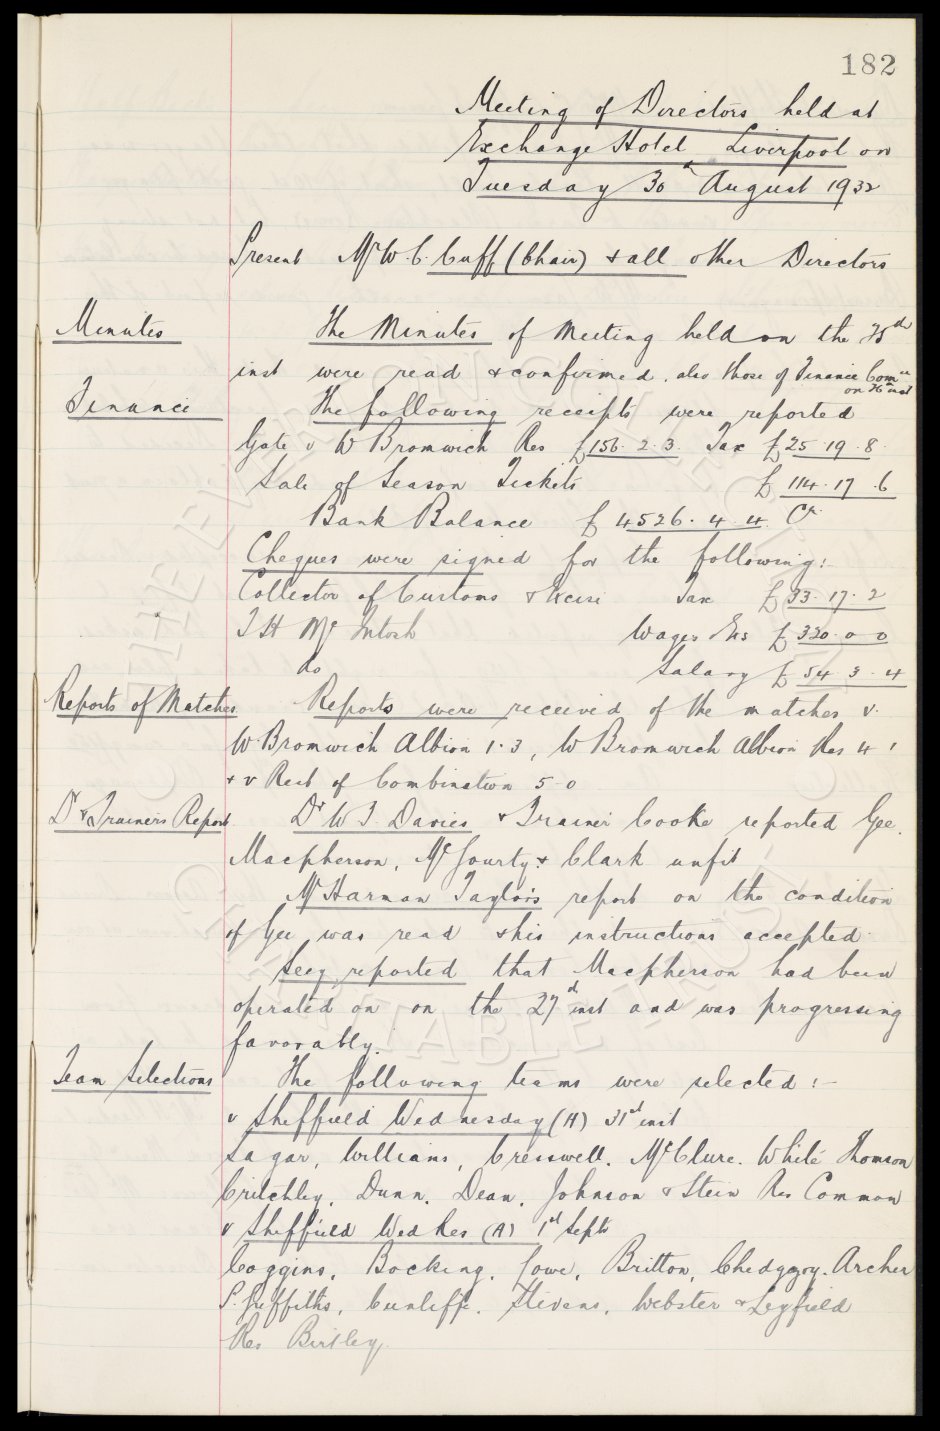 182
Meeting of Directors held at
Exchange Hotel Liverpool on
Tuesday 30 August 1932
Present Mr W. C. Cuff (Chair) & all other Directors
Minutes The Minutes of Meeting held on the 25th
inst were read & confirmed, also those of Finance Comee
on 26 inst
Finance The following receipts were reported
Gate v W Bromwich Res £156. 2. 3. Tax £25 19. 8.
Sale of Season Tickets £ 114. 17. 6
Bank Balance £ 4526. 4. 4 Cr
Cheques were signed for the following:-
Collector of Customs & Excise Tax £33. 17. 2
T H McIntosh Wages Exs £ 320. 0 0
do Salary £ 54 3. 4
Reports of Matches Reports were received of the matches v.
W Bromwich Albion 1. 3, W Bromwich Albion Res 4 1
& v Rest of Combination 5-0
Dr & Trainers Report Dr W. J. Davies & Trainer Cooke reported Gee.
Macpherson, McGourty & Clark unfit
Mr Harman Taylor's report on the condition
of Gee was read & his instructions accepted
Secy reported that Macpherson had been
operated on on the 27th inst and was progressing
favorably.
Team Selections The following teams were selected:-
v Sheffield Wednesday (A) 31st inst
Sagar, Williams, Cresswell. McClure. White Thomson
Critchley. Dunn. Dean. Johnson & Stein Res Common
v Sheffield Wed Res (A) 1st Septr
Coggins, Bocking, Lowe, Britton, Chedgzoy. Archer
S. Griffiths, Cunliffe. Stevens, Webster & Leyfield
Res Birtley.
THE EVERTON COLLECTION CHARITABLE TRUST